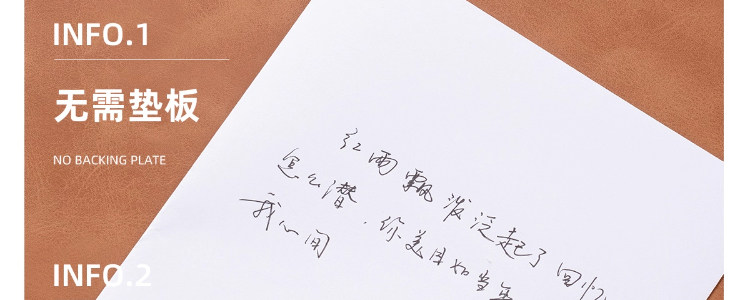 INFO.1
无需垫板
NO BACKING PLATE
红雨飘泼泛起了回忆
怎么潜,你美目如当年
我心间
INFO.2